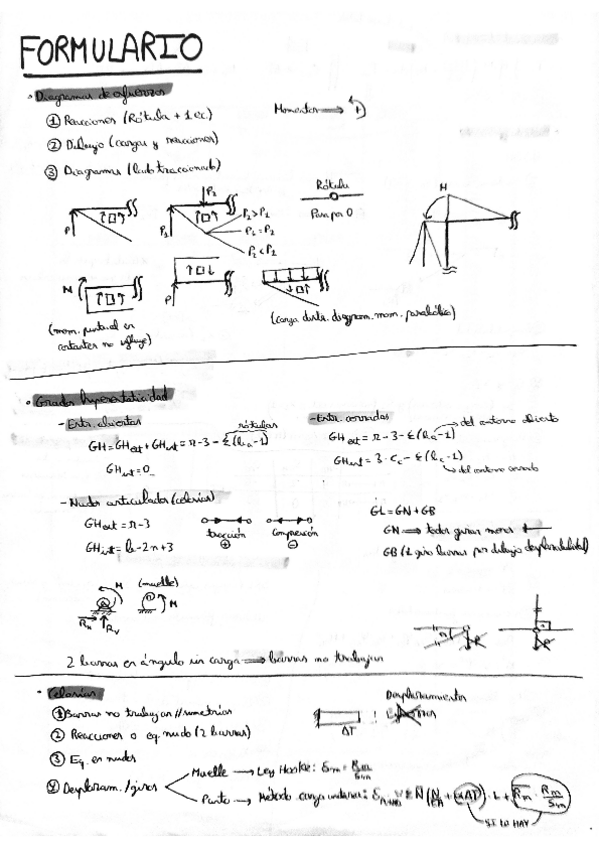 FORMULARIO
• Diagramas de esfuerzos
① Reacciones (Rótula + 1 ec.)
Momentos ⟹ (+)
② Dibujo (cargas y reacciones)
③ Diagramas (lado traccionado)
P
P₁ P₂
P₂ > P₁
P₁ = P₂
P₂ < P₁
Rótula
Pasa por 0
M
M
P
(mom. puntual en
cortantes no influye)
(carga distr. diagram. mom. parabólico)
• Grados hiperestaticidad
- Estr. abiertas
rótulas
GH = GHext + GHint = r - 3 - Σ(ba - 1)
GHint = 0
- Estr. cerradas
del entorno abierto
GHext = r - 3 - Σ(ba - 1)
GHint = 3 · Cc - Σ(bc - 1)
del entorno cerrado
- Nudos articulados (celosías)
GHext = r - 3
GHint = b - 2n + 3
tracción
⊕
Compresión
⊖
GL = GN + GB
GN ⟹ todos giran menos
GB (1 giro barras por dibujo desplazabilidad)
M (muelle)
M
RH RV
2 barras en ángulo sin carga ⟹ barras no trabajan
• Celosías
① Barras no trabajan // simetrías
② Reacciones o eq. nudo (2 barras)
③ Eq. en nudos
④ Desplazam./giros
Desplazamientos
ΔT
Muelle → Ley Hooke: δm = Rm/Sm
Punto → Método carga unitaria: δ = Σ N̄ (N/EA + αΔT) · L + R̄m · Rm/Sm
SI LO HAY